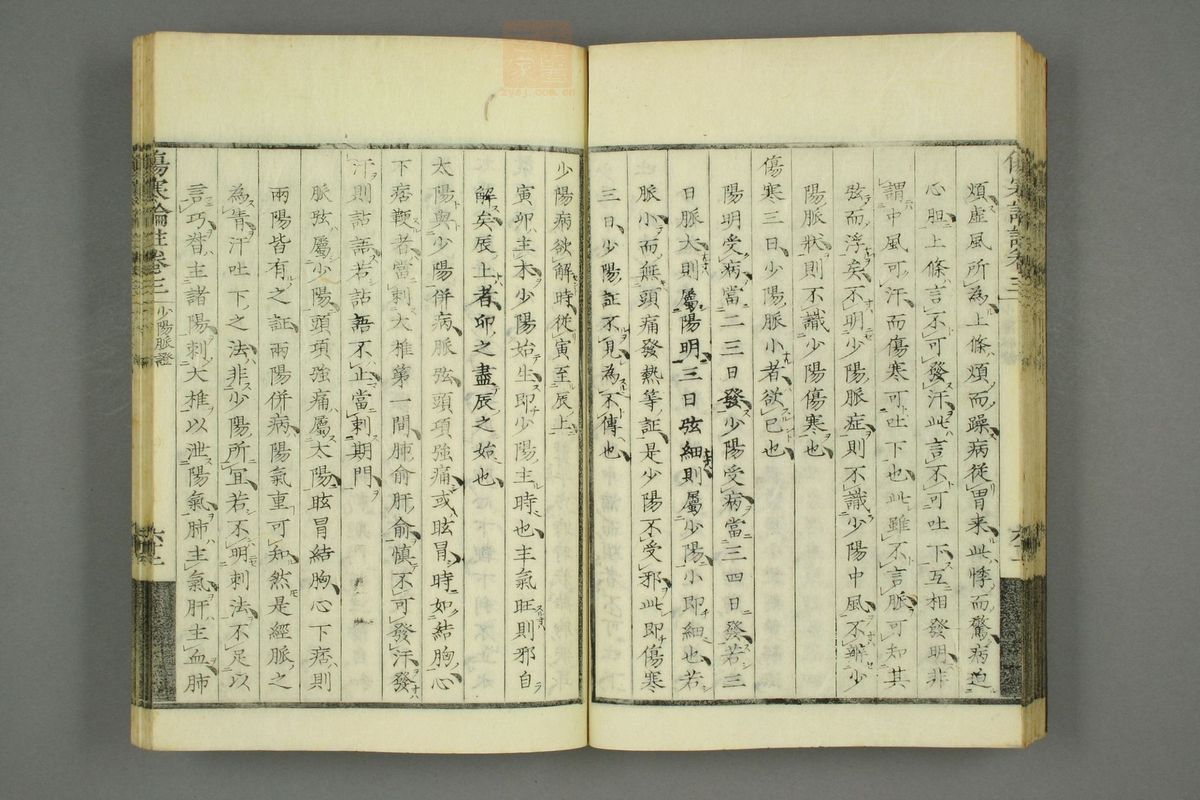 煩虛風所為上條煩而躁病從胃來此悸而驚病迫
心胆上條言不可發汗此言不可吐下互相發明非
謂中風可汗而傷寒可吐下也此雖不言脈可知其
弦而浮矣不明少陽脈症則不識少陽中風不解少
陽脈狀則不識少陽傷寒也
傷寒三日少陽脈小者欲已也
陽明受病當二三日發少陽受病當三四日發若三
日脈大則屬陽明三日弦細則屬少陽小即細也若
脈小而無頭痛發熱等証是少陽不受邪此即傷寒
三日少陽証不見為不傳也
少陽病欲解時從寅至辰上
寅卯主木少陽始生即少陽主時也主氣旺則邪自
解矣辰上者卯之盡辰之始也
太陽與少陽併病脈弦頭項強痛或眩冒時如結胸心
下痞鞕者當刺大椎第一間肺俞肝俞慎不可發汗發
汗則詁語若詁語不止當刺期門
脈弦屬少陽頭項強痛屬太陽眩冒結胸心下痞則
兩陽皆有之証兩陽併病陽氣重可知然是經脈之
為眚汗吐下之法非少陽所宜若不明刺法不足以
言巧督主諸陽刺大椎以泄陽氣肺主氣肝主血肺
傷寒論註卷三 少陽脈證